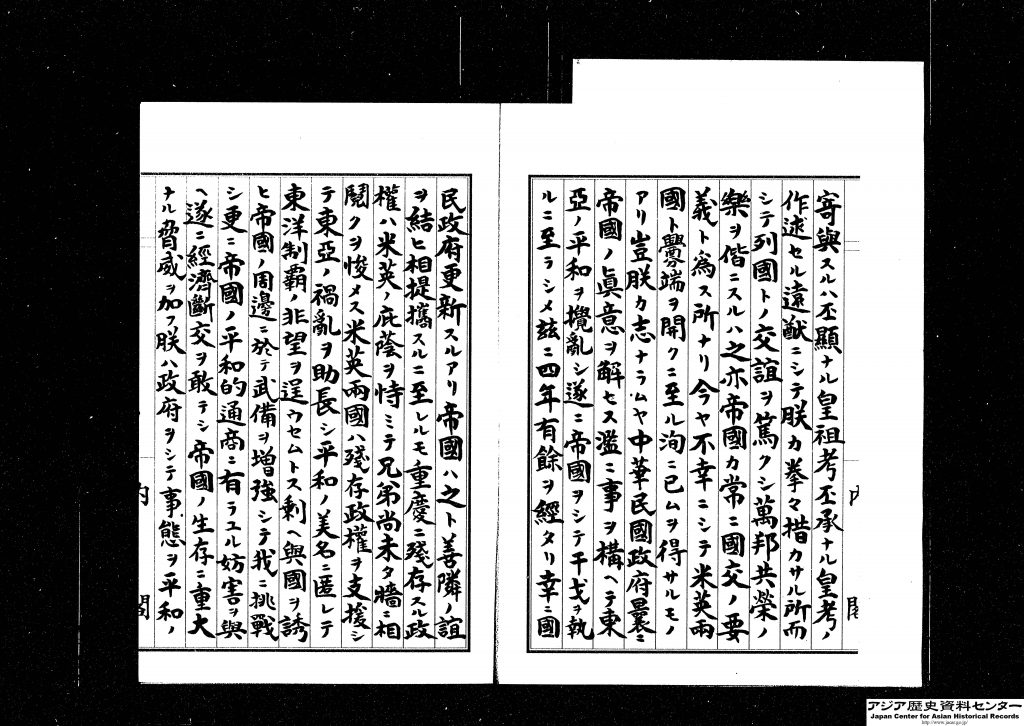 寄與スルハ丕顯ナル皇祖考丕承ナル皇考ノ
作述セル遠猷ニシテ朕カ拳々措カサル所而
シテ列國トノ交誼ヲ篤クシ萬邦共榮ノ
樂ヲ偕ニスルハ之亦帝國カ常ニ國交ノ要
義ト爲ス所ナリ今ヤ不幸ニシテ米英兩
國ト釁端ヲ開クニ至ル洵ニ已ムヲ得サルモノ
アリ豈朕カ志ナラムヤ中華民國政府曩ニ
帝國ノ眞意ヲ解セス濫ニ事ヲ構ヘテ東
亞ノ平和ヲ攪亂シ遂ニ帝國ヲシテ干戈ヲ執
ルニ至ラシメ玆ニ四年有餘ヲ經タリ幸ニ國
民政府更新スルアリ帝國ハ之ト善隣ノ誼
ヲ結ヒ相提攜スルニ至レルモ重慶ニ殘存スル政
權ハ米英ノ庇蔭ヲ恃ミテ兄弟尚未タ牆ニ相
鬩クヲ悛メス米英兩國ハ殘存政權ヲ支援シ
テ東亞ノ禍亂ヲ助長シ平和ノ美名ニ匿レテ
東洋制霸ノ非望ヲ逞ウセムトス剩ヘ與國ヲ誘
ヒ帝國ノ周邊ニ於テ武備ヲ增強シテ我ニ挑戰
シ更ニ帝國ノ平和的通商ニ有ラユル妨害ヲ與
ヘ遂ニ經濟斷交ヲ敢テシ帝國ノ生存ニ重大
ナル脅威ヲ加フ朕ハ政府ヲシテ事態ヲ平和ノ
内
閣
アジア歴史資料センター
Japan Center for Asian Historical Records
http://www.jacar.go.jp/